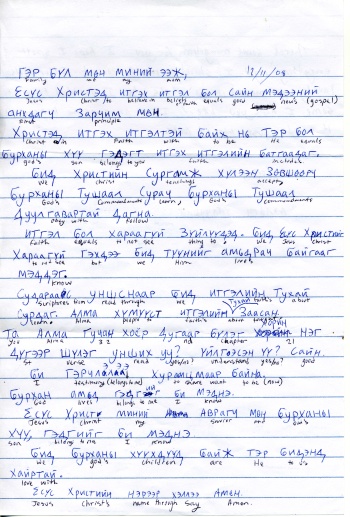 ГЭР БҮЛ МӨН МИНИЙ ЭЭЖ,
Family me my mom
12/11/08
Есүс Христэд итгэх итгэл бол сайн мэдээний
Jesus Christ to believe in belief/faith equals good news (gospel)
анхдагч зарчим мөн.
first principle
Христэд итгэх итгэлтэй байх нь тэр бол
Christ in faith with to be he equals
Бурханы хүү гэдэгт итгэх итгэлийн
god's son belongs to you faith include
Бид Христийн Сургаалж хүлээн зөвшөөрч
we Christ teachings accept
Бурханы Тушаал Сурач Бурханы Тушаал
God's Commandments learn, God's Commandments
Дуулгавартай Дагна.
obey with Follow
итгэл бол хараагүй зүйлүүдэд. Бид Есүс Христийг
faith equals to not see thing to. We Jesus Christ
Хараагүй гэхдээ бид түүнийг амьдрач байгааг
to not see but we Him lives
мэддэг.
know
уншснаар бид итгэлийн тухай
scriptures from read through we faith's about
Сурдаг. Алма хүмүүст итгэлийн Заасан.
learn. Alma people we faith's
Та Алма Гучин хоёр дугаар бүлэг нэг
you Alma 32 nd chapter 21
дүгээр шүлэг унших уу? Үйлгөөсэн үү? Сайн.
st verse read yes/no? understand yes/no? good
Би хуваалцмаар байна.
I testimony (belongs to me) to share want to be (now)
Бурхан амьд гэдгийг би мэднэ.
God lives belongs to me I know
Есүс Христ миний Аврагч мөн Бурханы
Jesus Christ my savior and God's
хүү, гэдгийг би мэднэ
son belongs to me I know
Бид Бурханы хүүхдүүд байж Тэр бидэнд
we god's children are He to us
хайртай.
love with
Есүс Христийн нэрээр хэлээ Амен.
Jesus Christ's name through say Amen.